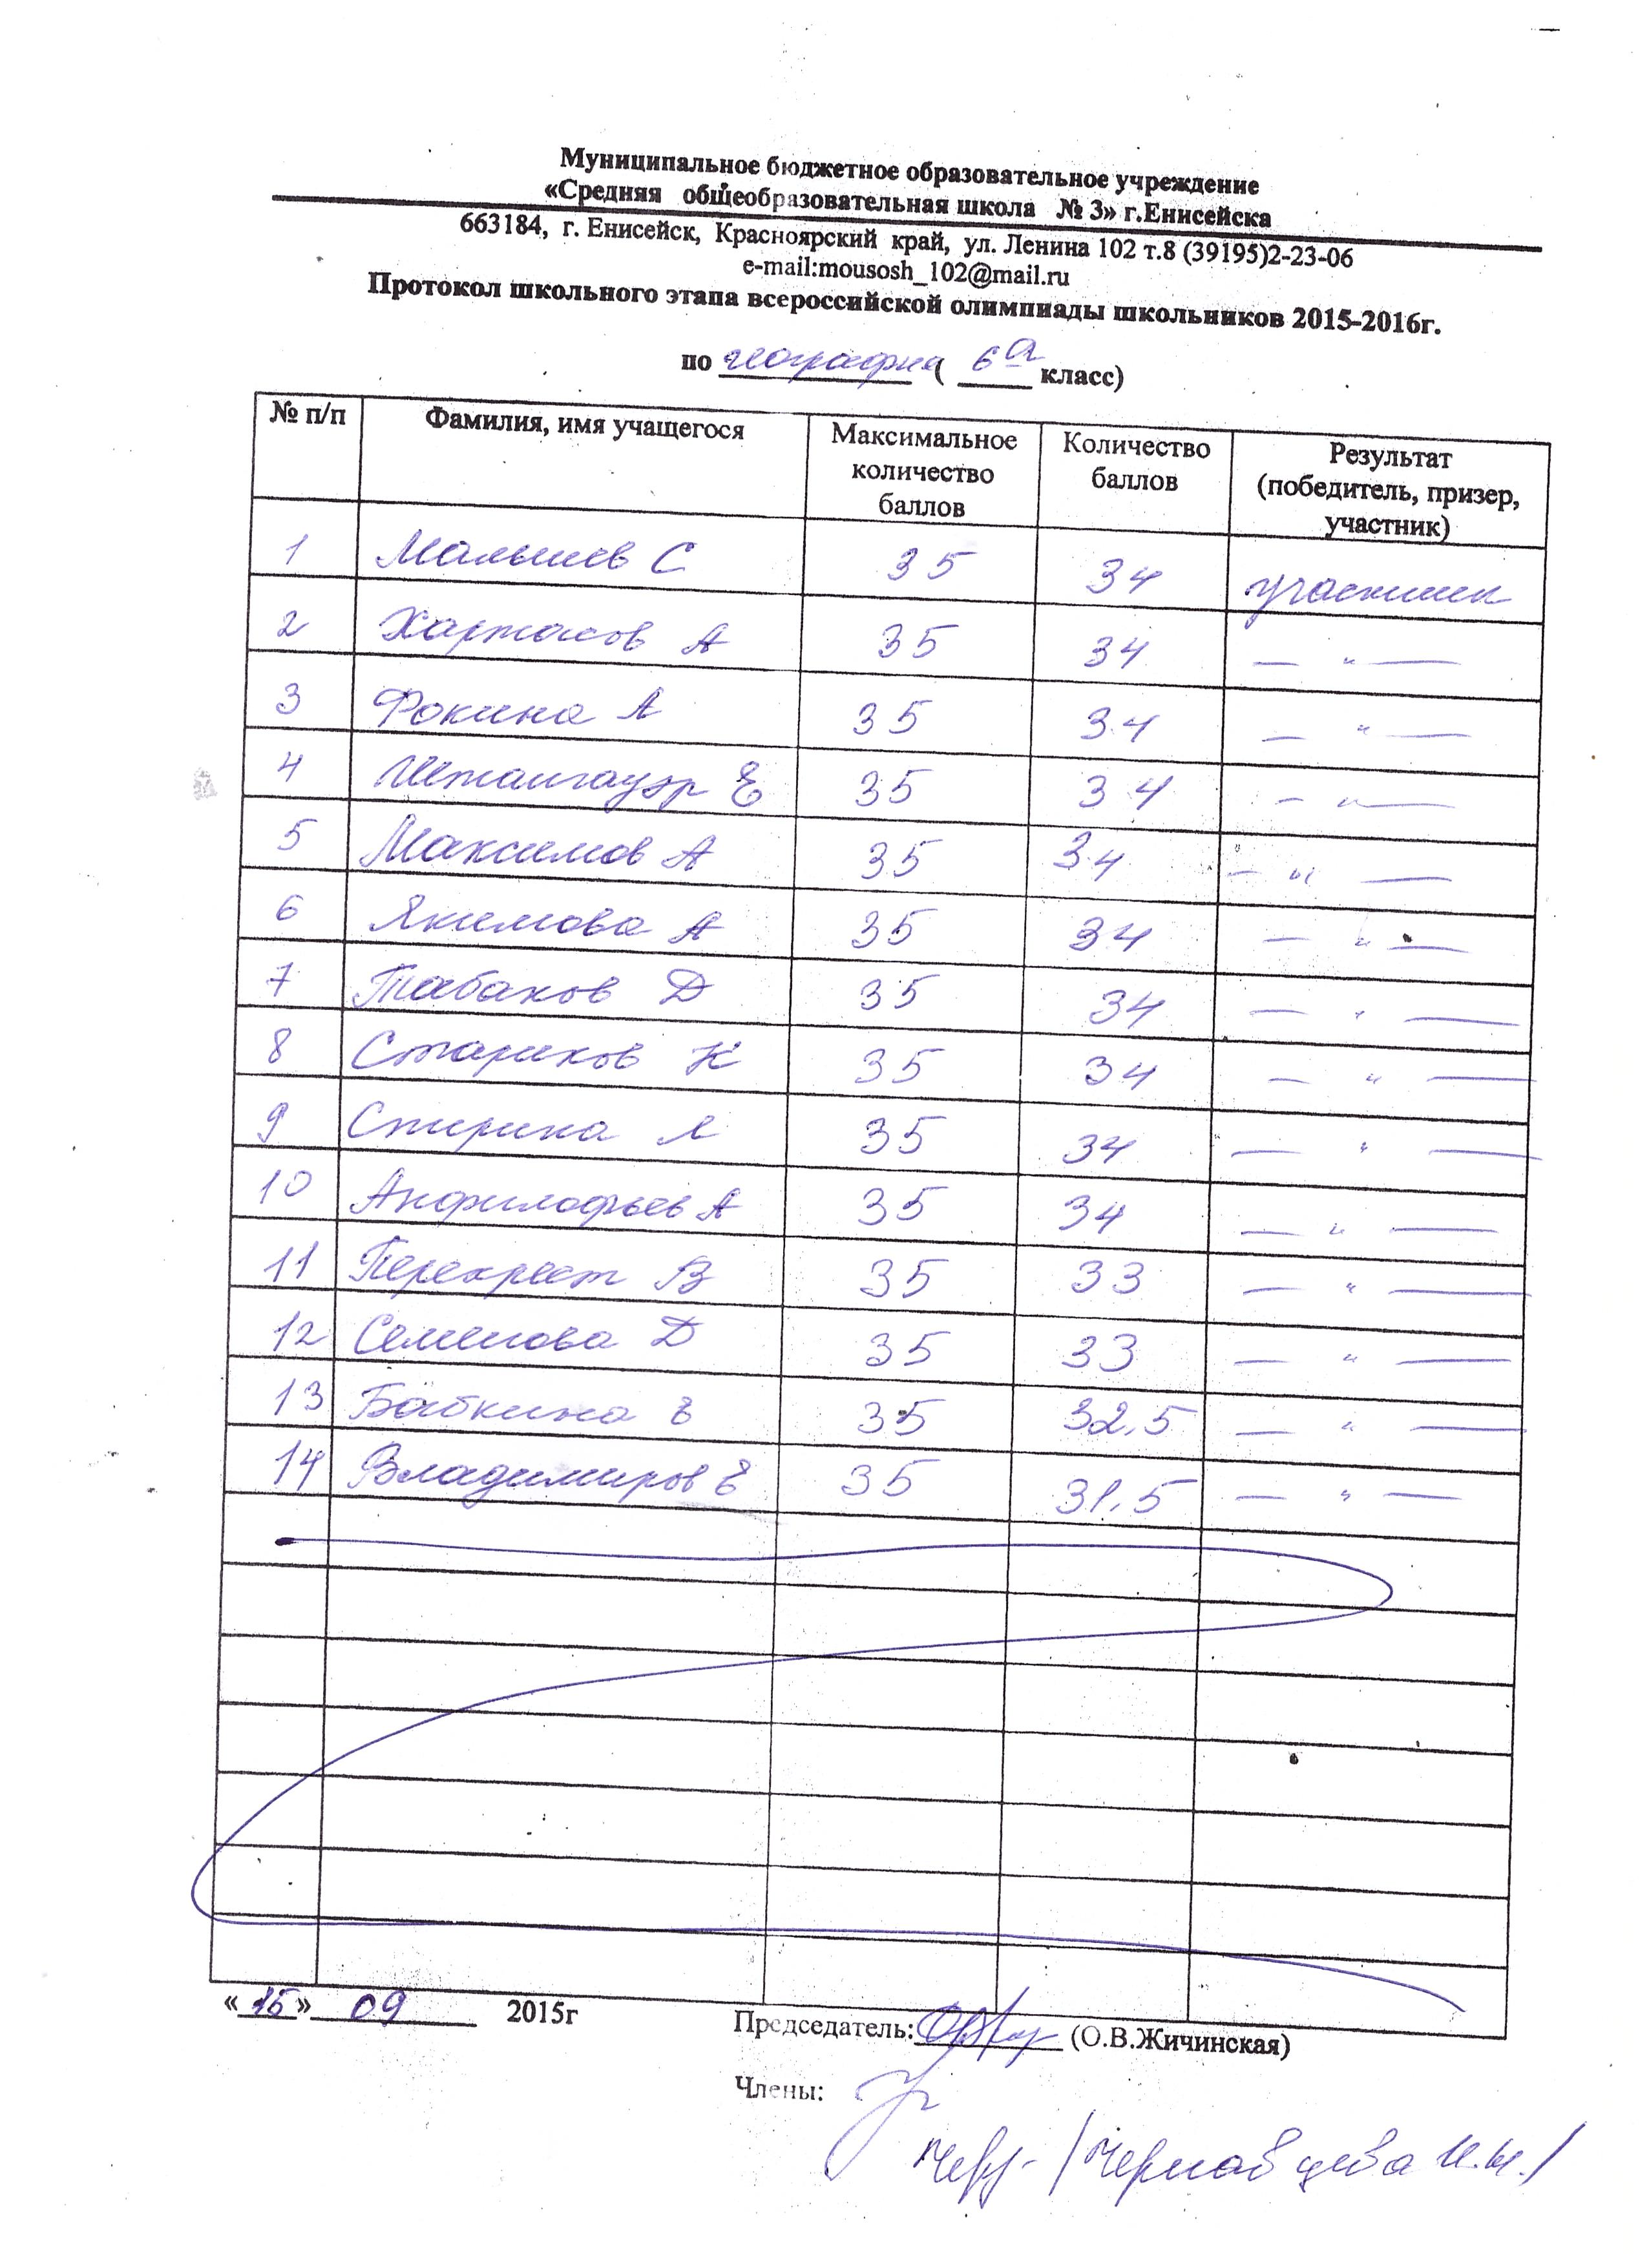 Муниципальное бюджетное образовательное учреждение
«Средняя общеобразовательная школа № 3» г.Енисейска
663184, г. Енисейск, Красноярский край, ул. Ленина 102 т.8 (39195)2-23-06
e-mail:mousosh_102@mail.ru
Протокол школьного этапа всероссийской олимпиады школьников 2015-2016г.
по география ( 6а класс)
№ п/п Фамилия, имя учащегося Максимальное количество баллов Количество баллов Результат (победитель, призер, участник)
1 Малышев С 35 34 участник
2 Хартасов А 35 34 — " —
3 Фокина А 35 34 — " —
4 Штангауэр Е 35 34 — " —
5 Максимов А 35 34 — " —
6 Якимова А 35 34 — " —
7 Табаков Д 35 34 — " —
8 Стариков К 35 34 — " —
9 Стирина 35 34 — " —
10 Анфилофьев А 35 34 — " —
11 Перекрест В 35 33 — " —
12 Семенова Д 35 33 — " —
13 Бабкина Е 35 32,5 — " —
14 Владимиров Е 35 31,5 — " —
« 15 » 09 2015г
Председатель: (О.В.Жичинская)
Члены:
/Чернавцева Н.Н./